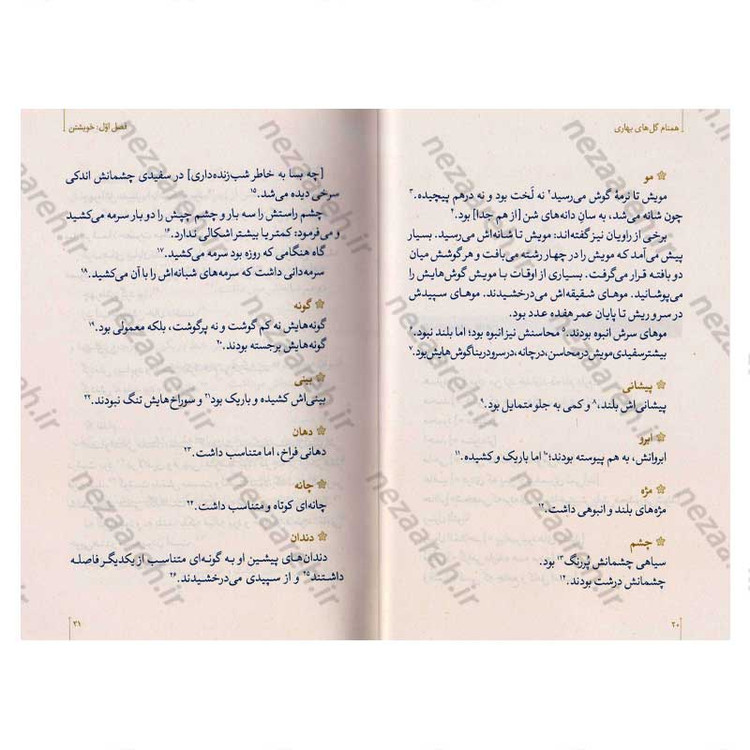 همنام گل‌های بهاری
مو
مویش تا نرمهٔ گوش می‌رسید۲ نه لَخت بود و نه درهم پیچیده.۳
چون شانه می‌شد، به سانِ دانه‌های شن [از هم جدا] بود.۴
برخی از راویان نیز گفته‌اند: مویش تا شانه‌اش می‌رسید. بسیار
پیش می‌آمد که مویش را در چهار رشته می‌بافت و هر گوشش میان
دو بافته قرار می‌گرفت. بسیاری از اوقات با مویش گوش‌هایش را
می‌پوشانید. موهای شقیقه‌اش می‌درخشیدند. موهای سپیدش
در سر و ریش تا پایان عمر هفده عدد بود.
موهای سرش انبوه بودند.۵ محاسنش نیز انبوه بود؛ اما بلند نبود.۶
بیشتر سفیدی مویش در محاسن، در چانه، در سر و در بناگوش‌هایش بود.۷
پیشانی
پیشانی‌اش بلند،۸ و کمی به جلو متمایل بود.۹
ابرو
ابروانش، به هم پیوسته بودند؛۱۰ اما باریک و کشیده.۱۱
مژه
مژه‌های بلند و انبوهی داشت.۱۲
چشم
سیاهی چشمانش پُررنگ۱۳ بود.
چشمانش درشت بودند.۱۴
۲۰
فصل اوّل: خویشتن
[چه بسا به خاطر شب‌زنده‌داری] در سفیدی چشمانش اندکی
سرخی دیده می‌شد.۱۵
چشم راستش را سه بار و چشم چپش را دو بار سرمه می‌کشید
و می‌فرمود: کمتر یا بیشتر اشکالی ندارد.۱۶
گاه هنگامی که روزه بود سرمه می‌کشید.۱۷
سرمه‌دانی داشت که سرمه‌های شبانه‌اش را با آن می‌کشید.۱۸
گونه
گونه‌هایش نه کم گوشت و نه پرگوشت، بلکه معمولی بود.۱۹
گونه‌هایش برجسته بودند.۲۰
بینی
بینی‌اش کشیده و باریک بود۲۱ و سوراخ‌هایش تنگ نبودند.۲۲
دهان
دهانی فراخ، اما متناسب داشت.۲۳
چانه
چانه‌ای کوتاه و متناسب داشت.۲۴
دندان
دندان‌های پیشین او به گونه‌ای متناسب از یکدیگر فاصله
داشتند۲۵ و از سپیدی می‌درخشیدند.۲۶
۲۱
nezaareh.ir